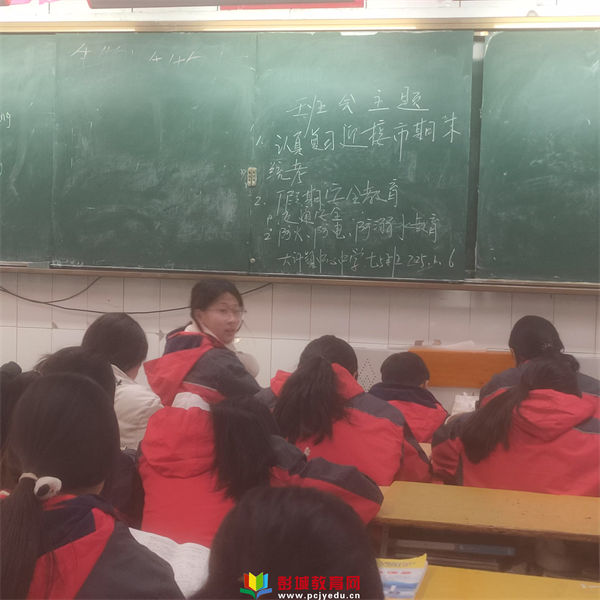 班会主题
1. 认真复习迎接市期末
统考
2. 假期安全教育
1. 交通安全
2. 防火,防电,防溺水教育
大许镇中心中学七5班 225.1.6
彭城教育网
www.pcjyedu.cn